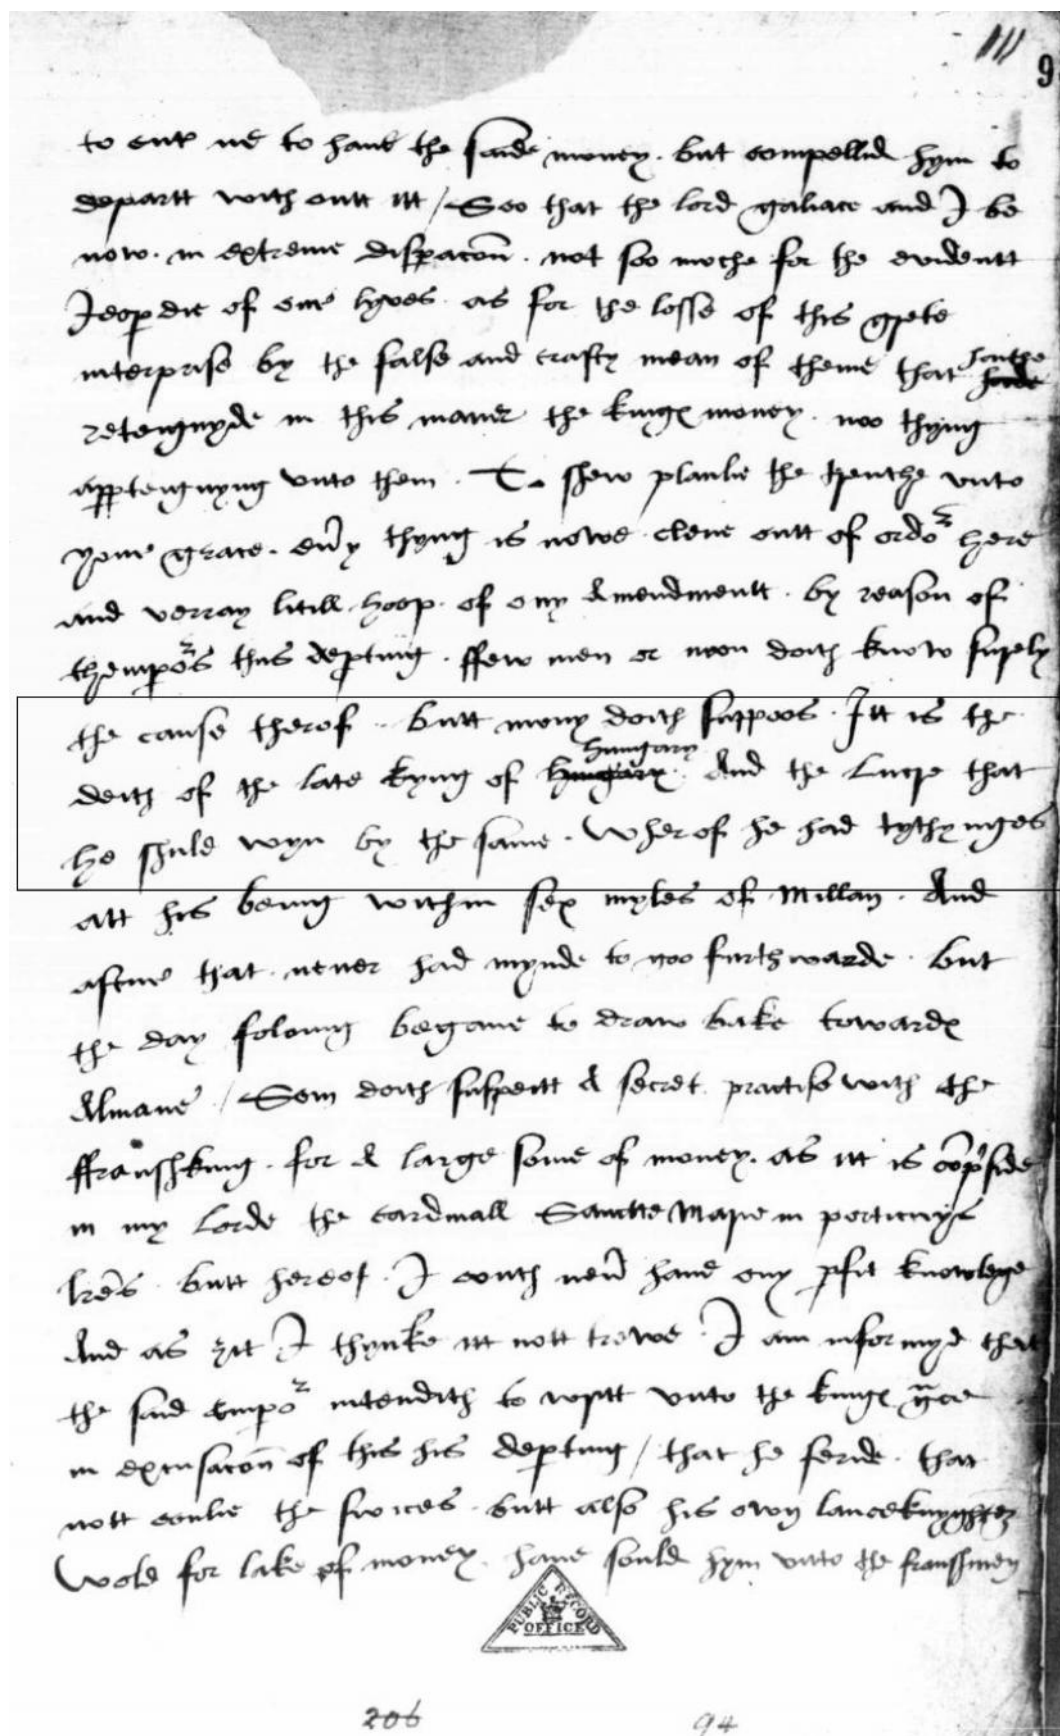 111
9
to entr me to haue the saide money . but compellid hym to
departt with outt itt / Soo that the lord galiace and I be
now . in extreme disperacon . not soo moche for the evidentt
Jeoperdie of our lyves . as for the losse of this grete
interprise by the false and crafty mean of theme that hathe
reteignyde in this maner the kinges money . noo thyng
apperteignyng vnto them . To shew planlie the trenthe vnto
your grace . euery thyng is nowe clene outt of ordor here
and verray litill hoop . of ony Amendmentt . by reason of
themperors this departing . ffew men or noon doith know surely
the cause therof . Butt mony doith suppoos . Itt is the
deith of the late kyng of hungary hungary . And the Lucre that
he shuld wyn by the same . Wherof he had tythynges
att his being within sex myles of Millan . And
aftur that . never had mynde to goo furthwarde . but
the day foloing begane to draw bake towardes
Almane / Som doith suspectt A secret practise with the
ffranshking . for A large some of money . as itt is comprisid
in my lorde the cardinall Sanctte Marie in porticuys
lres . butt hereof . I couth neuer haue ony perfit knowlege
And as yit I thynke itt nott trewe . I am informyd that
the said Emperor intendith to writt vnto the kinges grace
in excusacon of this his departing / that he feride . that
nott oonlie the swices . butt also his own lanceknyghtes
Wold for lake of money . haue sould hym vnto the franshmen
PUBLIC RECORD OFFICE
206
94